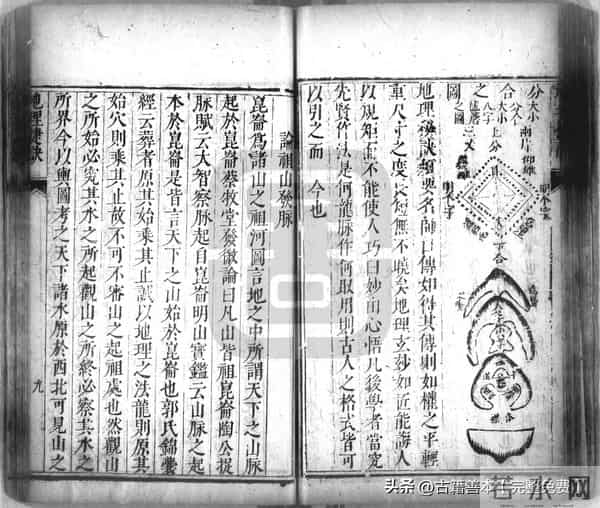 分大小
合大小
之
圖
兩片
上分
下合
地理秘訣類要名師口傳如得其傳則如權之平輕
重尺寸之度長短無不曉矣地理玄妙如近能誨人
以規矩而不能使人巧曰妙而心悟凡後學者當究
先賢作法是何龍脉作何取用則古人之格云皆可
以引之而 今也
論祖山發脉
崑崙為諸山之祖河圖言地之中所謂天下之山脉
起於崑崙蔡牧堂發微論曰凡山皆祖崑崙陶公捉
脉賦云大智察脉起自崑崙明山寶鑑云山脉之起
本於崑崙是皆言天下之山始於崑崙也郭氏錦囊
經云葬者原其始乘其止誠以地理之法龍則原其
始穴則乘其止故不可不審山之起祖處也然觀山
之所始必究其水之所起觀山之所終必察其水之
所界今以輿圖考之天下諸水原於西北可見山之
九
头条 @古籍善本